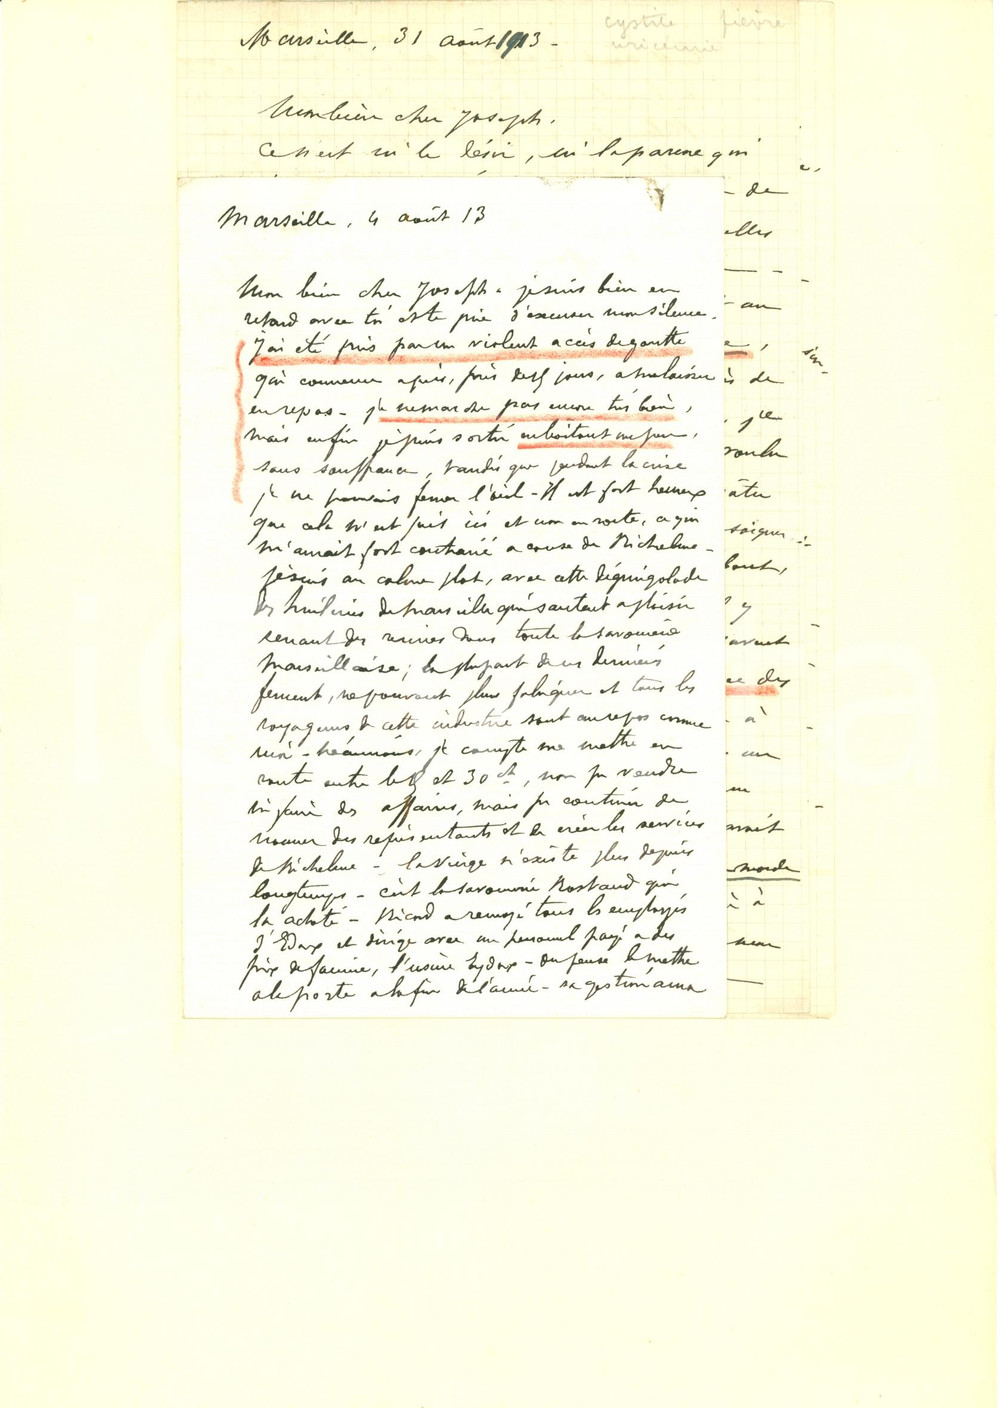 cystite fièvre
uricémie
Marseille, 31 août 1913 -
Mon bien cher Joseph.
Ce n'est ni le désir, ni la pa qui
de
elles
au
de
je
soigner
bout,
y
avant
des
à
un
monde
à
Marseille, 4 août 13
Mon bien cher Joseph - je suis bien en
retard avec toi et te prie d'excuser mon silence.
J'ai été pris par un violent accès de goutte
qui commence après, près de 15 jours, à me laisser
en repos - je ne marche pas encore très bien,
mais enfin je puis sortir en boitant un peu,
sans souffrance, tandis que pendant la crise
je ne pouvais fermer l'œil - Il est fort heureux
que cela m'ait pris ici et non en route, ce qui
m'aurait fort contrarié à cause de Richelme -
je suis au calme plat, avec cette dégringolade
des huileries de Marseille qui sautent à plaisir
semant des ruines dans toute la savonnerie
Marseillaise; la plupart de ces derniers
ferment, ne pouvant plus fabriquer et tous les
voyageurs de cette industrie sont au repos comme
moi - Néanmoins, je compte me mettre en
route entre le 15 et 30 ct, non pr vendre
ni faire des affaires, mais pr continuer de
nommer des représentants et de créer les services
de Richelme - la Vierge n'existe plus depuis
longtemps - c'est la savonnerie Rostand qui
l'a acheté - Ricard a remogé tous les employés
d'Edoux et dirige avec un personnel payé à des
prix de famine, l'usine Eydoux - on pense le mettre
à la porte à la fin de l'année - sa gestion aura